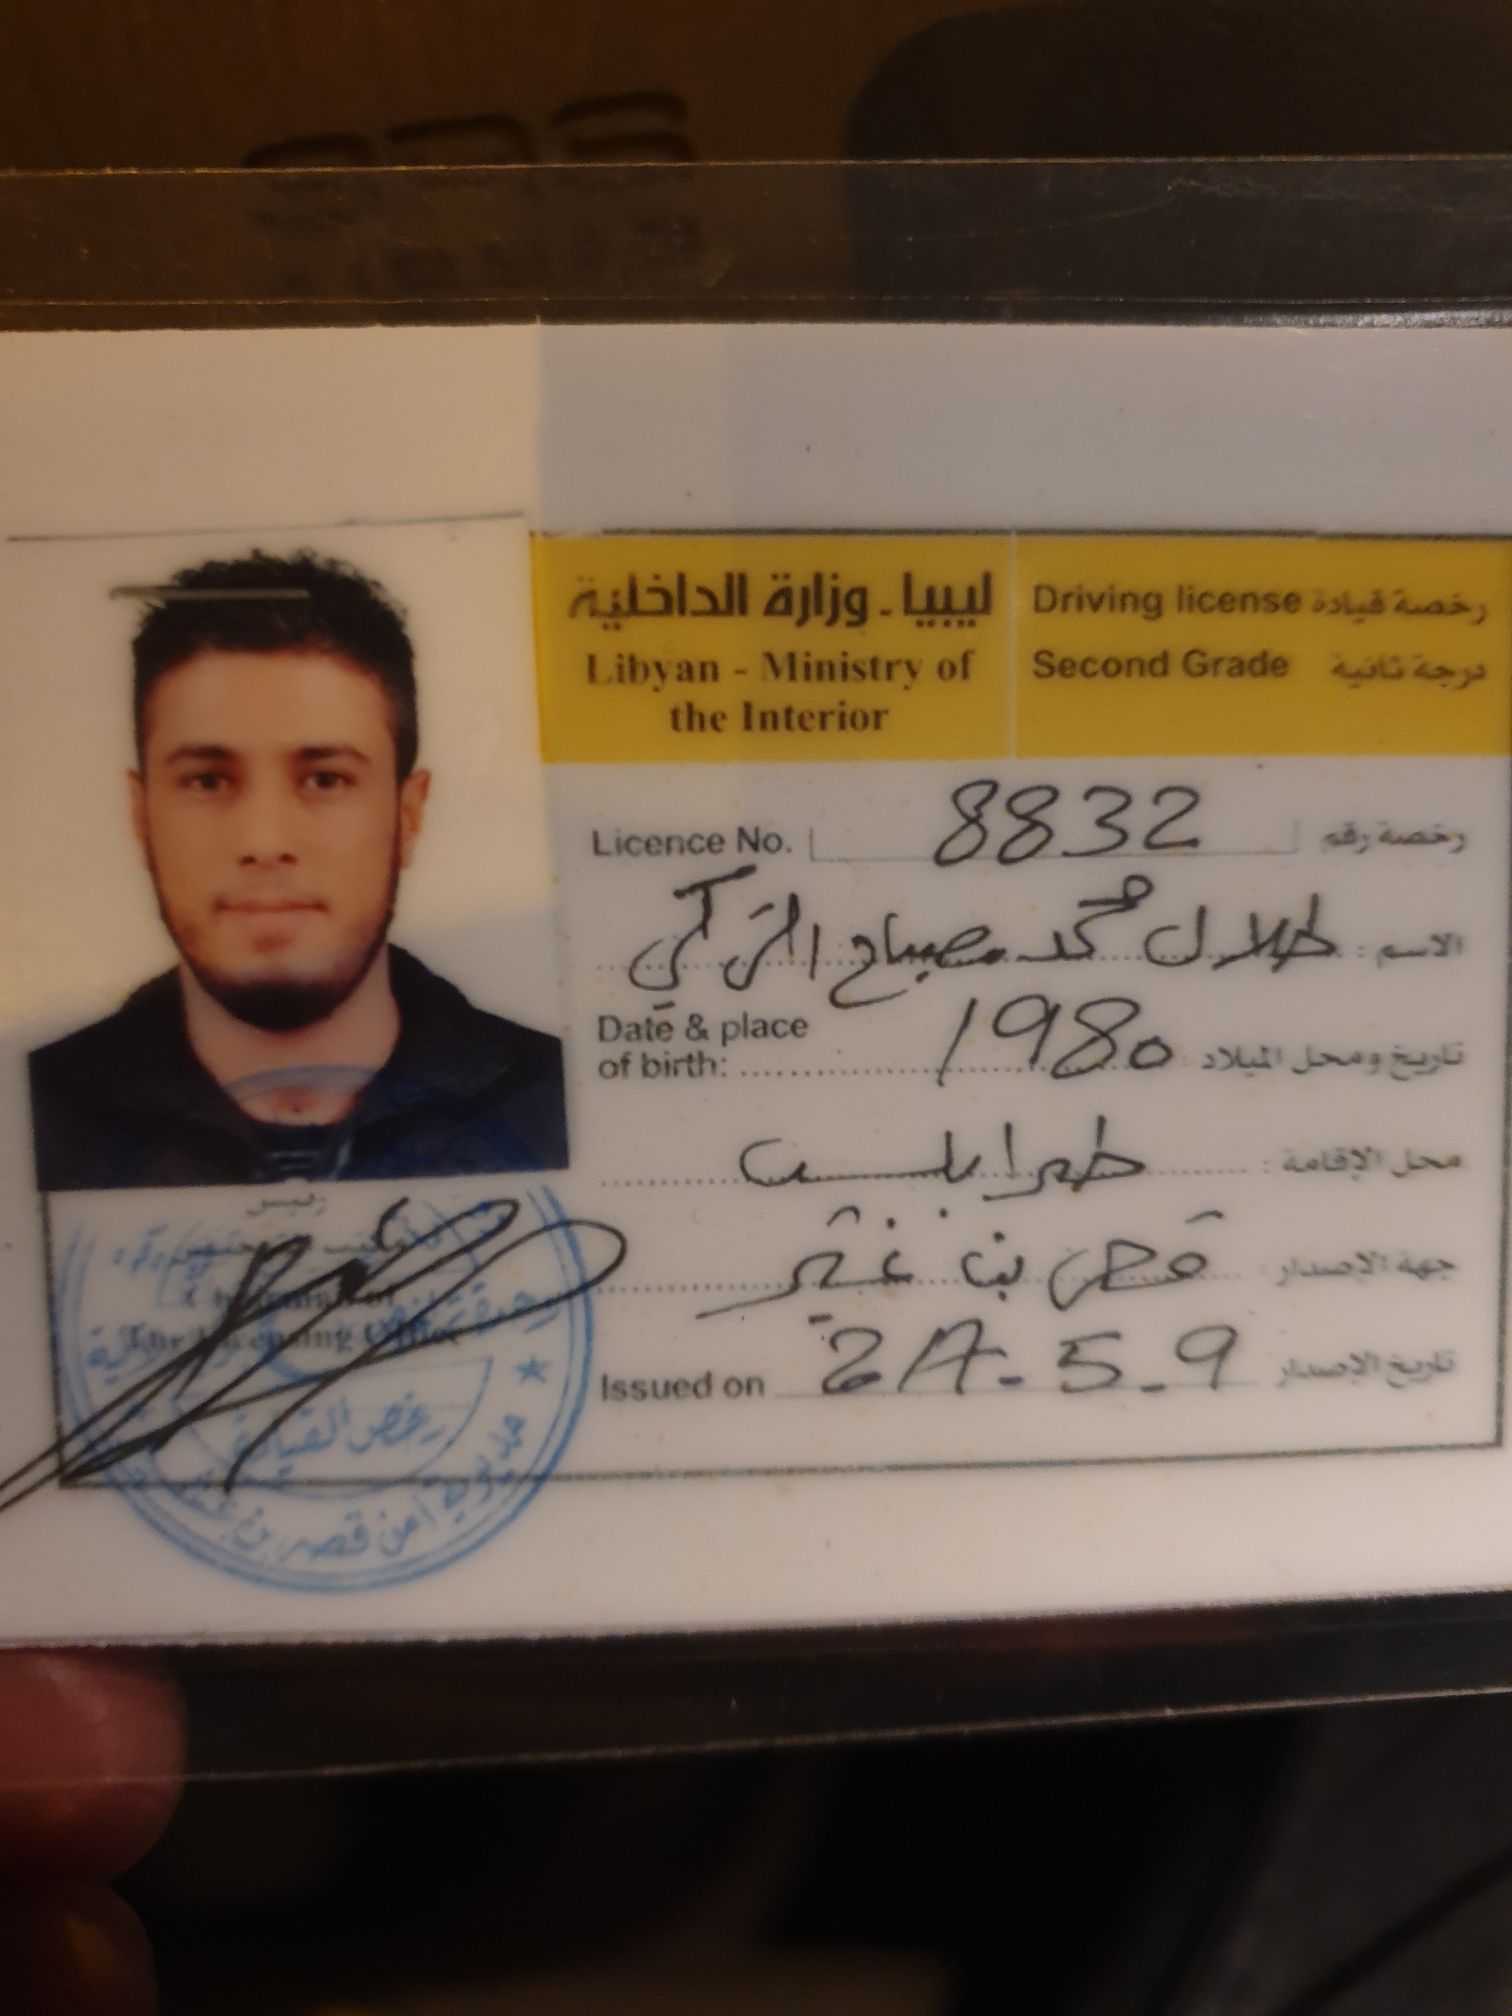 ليبيا - وزارة الداخلية
Libyan - Ministry of
the Interior
Driving license رخصة قيادة
Second Grade درجة ثانية
Licence No. 8832 رخصة رقم
الاسم : طلال محمد مصباح التركي
Date & place
of birth: 1980 تاريخ ومحل الميلاد
محل الإقامة : طرابلس
جهة الإصدار : قصر بن غشير
Issued on 2017-5-9 تاريخ الإصدار
رئيس
The Licensing Office
رخص القيادة
مديرية امن قصر بن غشير